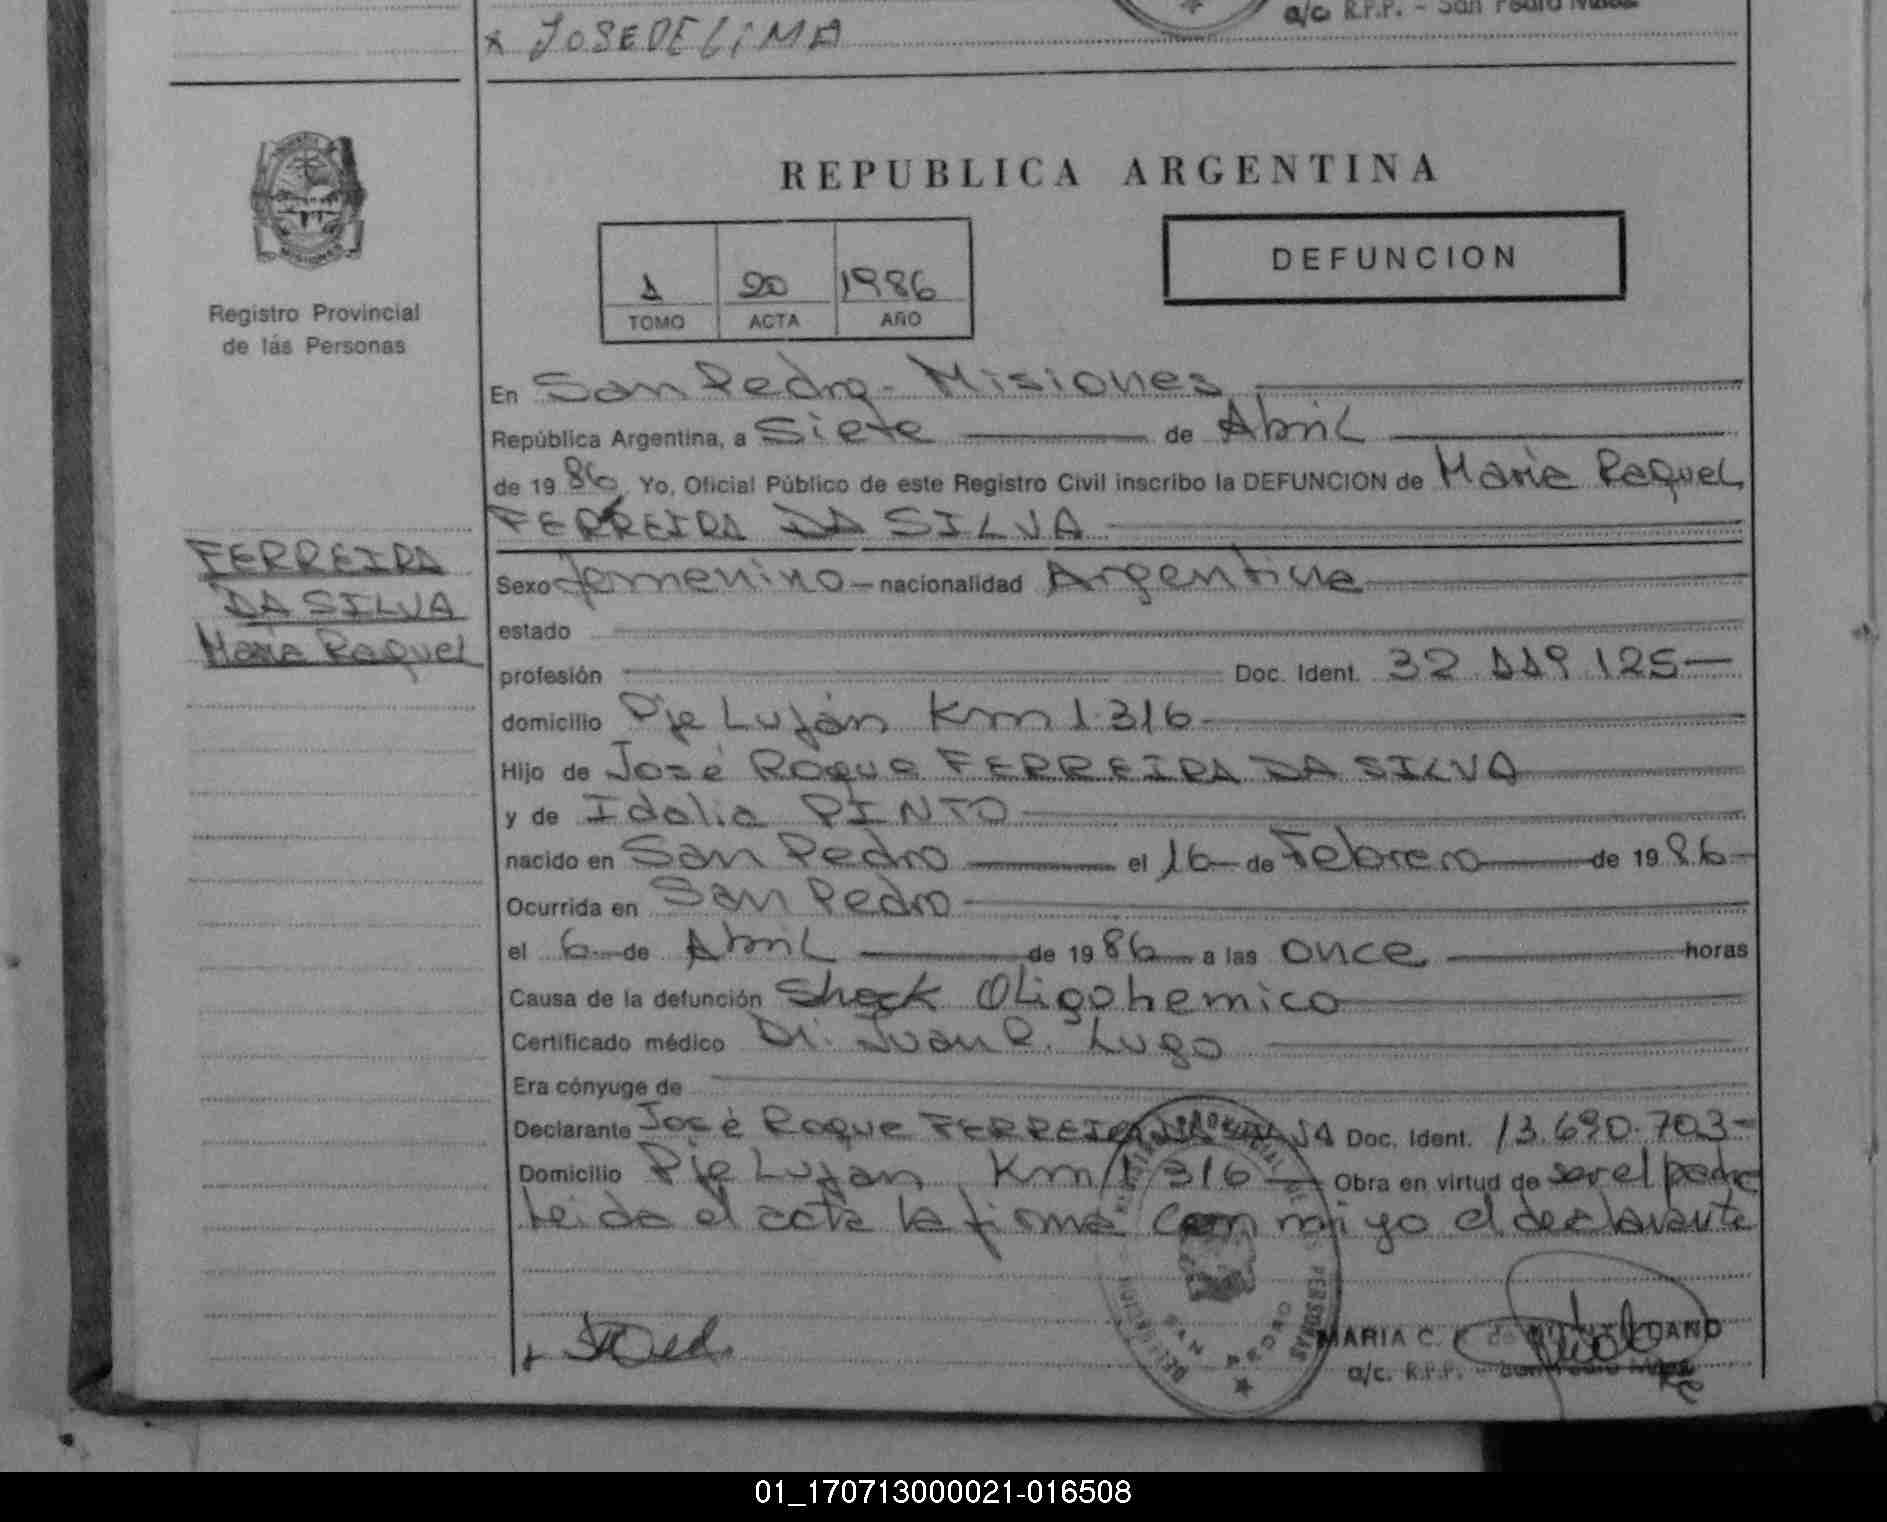 x JOSE DE LIMA
a/c R.P.P. - San Pedro Mnes.
REPUBLICA ARGENTINA
1 20 1986
TOMO ACTA AÑO
DEFUNCION
Registro Provincial
de las Personas
MISIONES
En San Pedro - Misiones
República Argentina, a Siete de Abril
de 1986 Yo, Oficial Público de este Registro Civil inscribo la DEFUNCION de Maria Raquel
FERREIRA DA SILVA
FERREIRA
DA SILVA
Maria Raquel
Sexo femenino - nacionalidad Argentina
estado
profesión Doc. Ident. 32.119.125
domicilio Pje Luján Km 1.316
Hijo de José Roque FERREIRA DA SILVA
y de Idalia PINTO
nacido en San Pedro el 16 de Febrero de 1986
Ocurrida en San Pedro
el 6 de Abril de 1986 a las once horas
Causa de la defunción Shock Oligohemico
Certificado médico Dr. Juan R. Lugo
Era cónyuge de
Declarante José Roque FERREIRA DA SILVA Doc. Ident. 13.690.703
Domicilio Pje Lujan Km 1 316 Obra en virtud de ser el padre
leida el acta la firma con mi yo el declarante
MARIA C.
a/c. R.P.P. - San Pedro Mnes.
01_170713000021-016508